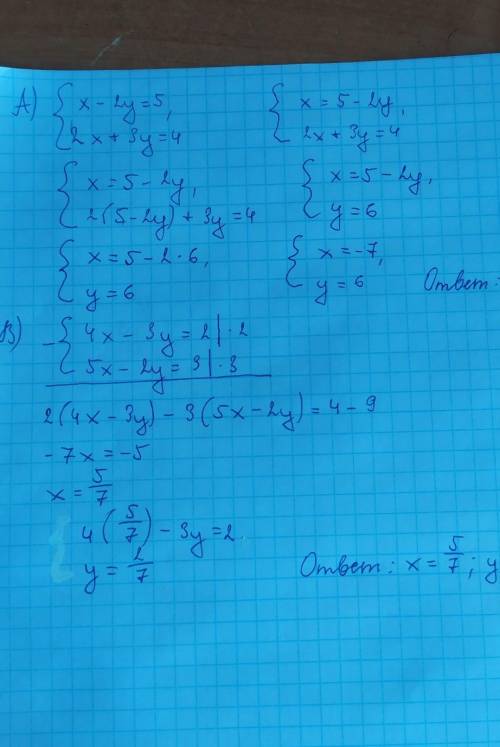 А) { x - 2y = 5, { x = 5 - 2y,
2x + 3y = 4 2x + 3y = 4
{ x = 5 - 2y, { x = 5 - 2y,
2(5-2y) + 3y = 4 y = 6
{ x = 5 - 2·6, { x = -7,
y = 6 y = 6 Ответ:
В) - { 4x - 3y = 2 | ·2
5x - 2y = 3 | ·3
2(4x - 3y) - 3(5x - 2y) = 4 - 9
-7x = -5
x = 5/7
4(5/7) - 3y = 2
y = 2/7 Ответ: x = 5/7; y